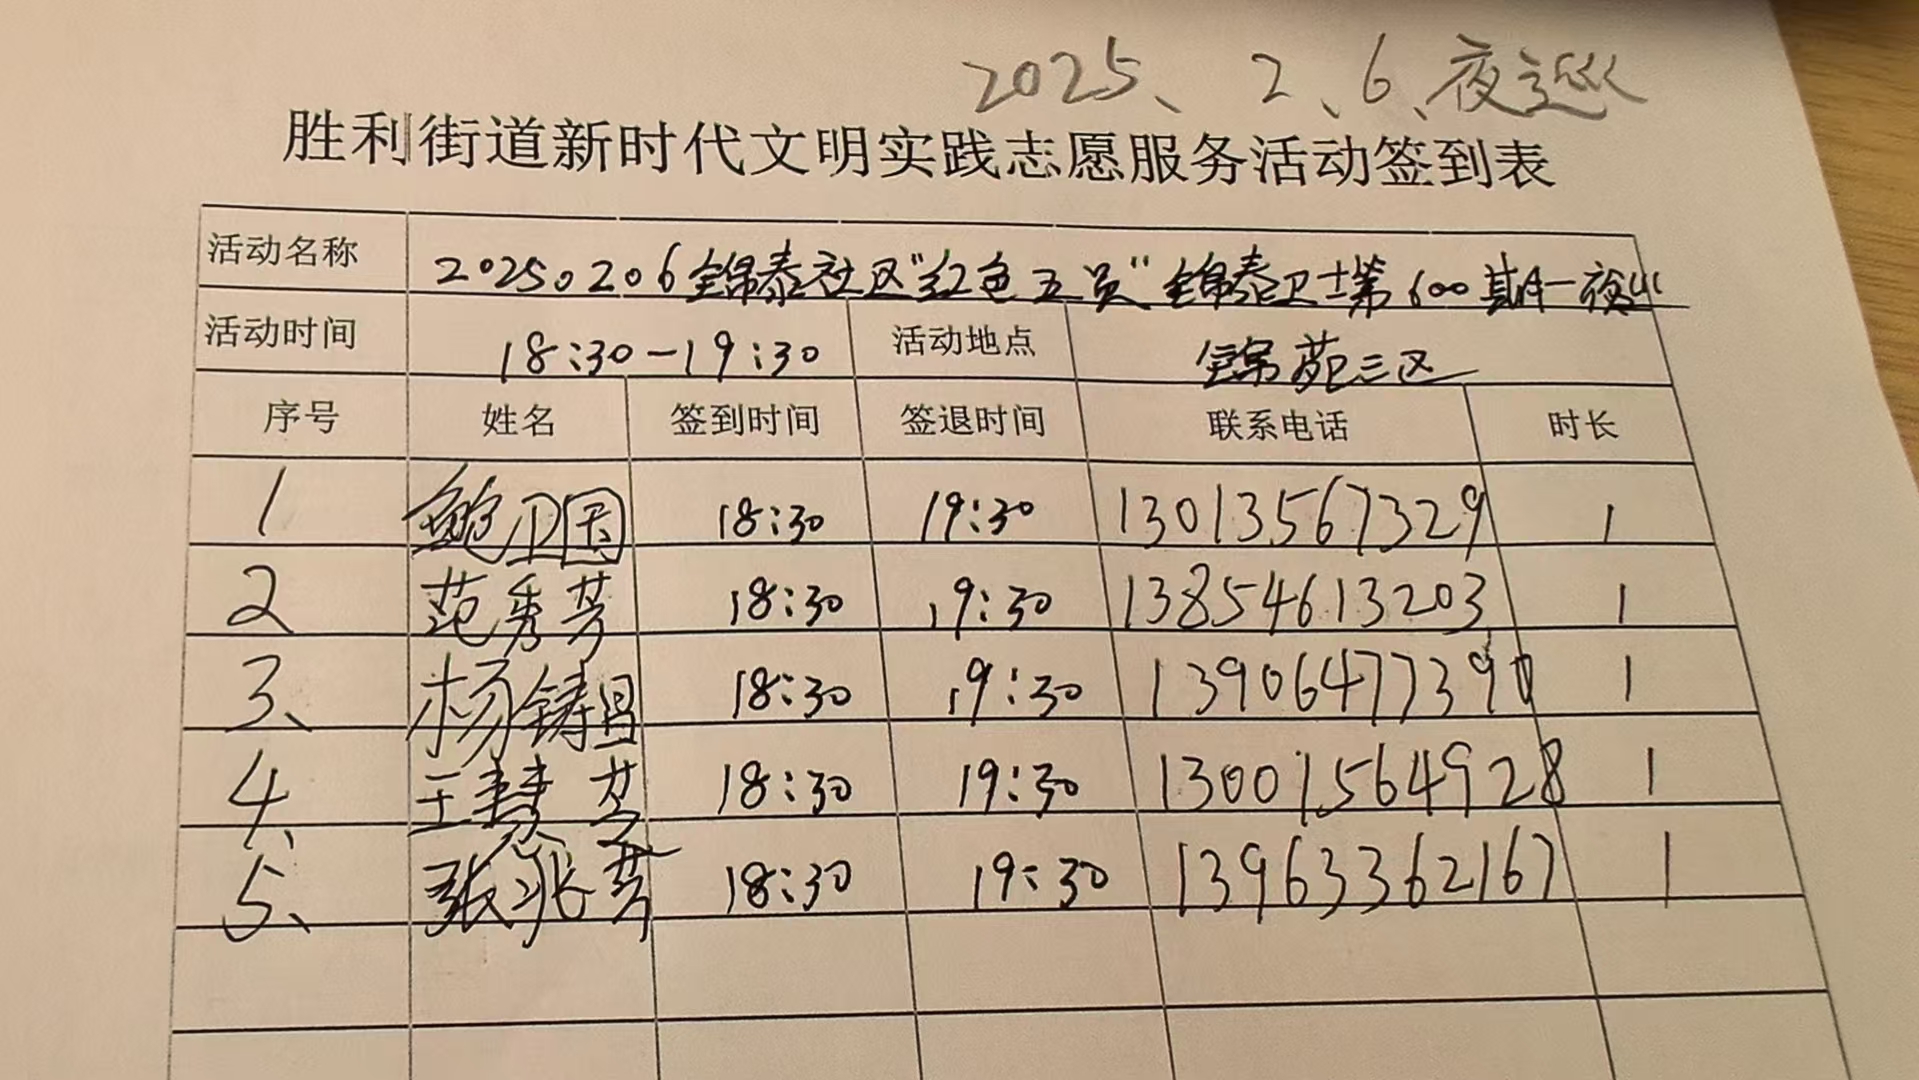 2025、2、6、夜巡
胜利街道新时代文明实践志愿服务活动签到表
活动名称 20250206锦泰社区“红色五员”锦泰卫士第600期—夜巡
活动时间 18:30-19:30 活动地点 锦苑三区
序号 姓名 签到时间 签退时间 联系电话 时长
1 鲍卫国 18:30 19:30 13013567329 1
2 范秀芳 18:30 19:30 13854613203 1
3、 杨铸昌 18:30 19:30 13906477390 1
4、 王慧芝 18:30 19:30 13001564928 1
5、 张兆芳 18:30 19:30 13963362167 1